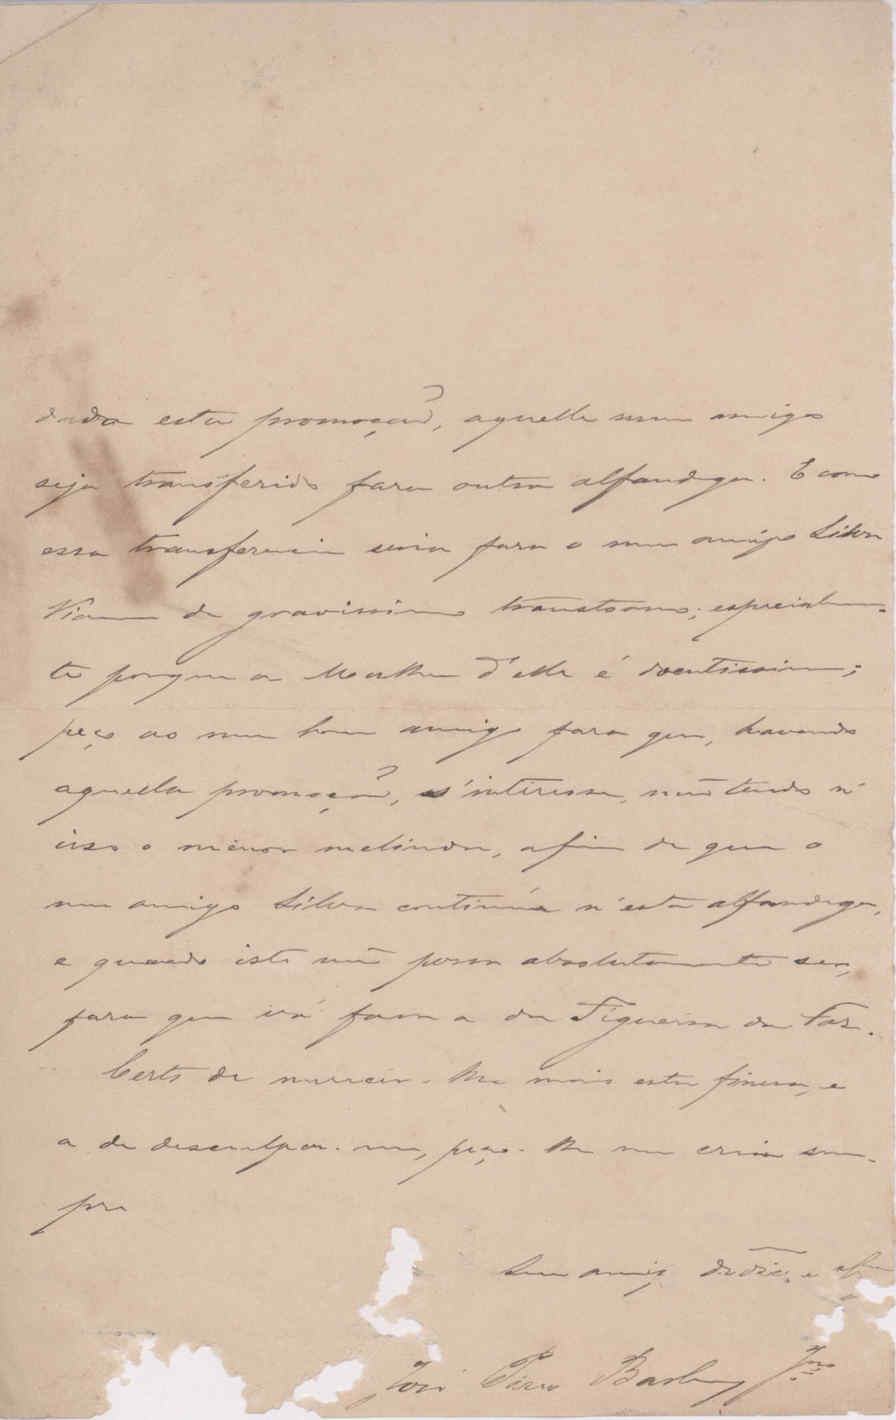 dada esta promoção, aquelle meu amigo
seja transferido para outra alfandega. E como
essa transferencia seria para o meu amigo Silva
Vianna de gravissimo transtorno, especialmen-
te porque a Mulher d'elle é doentissima;
peço ao meu bom amigo para que, havendo
aquella promoção, s'interesse, não tendo n'
isso o menor melindre, afim de que o
meu amigo Silva continúe n'esta alfandega,
e quando isto não possa absolutamente ser,
para que vá para a da Figueira da Foz.
Certo de merecer-lhe mais esta fineza, e
a de desculpar-me, peço-lhe me creia sem-
pre
Seu amigo dedic. e
José Pires Barbosa Jor